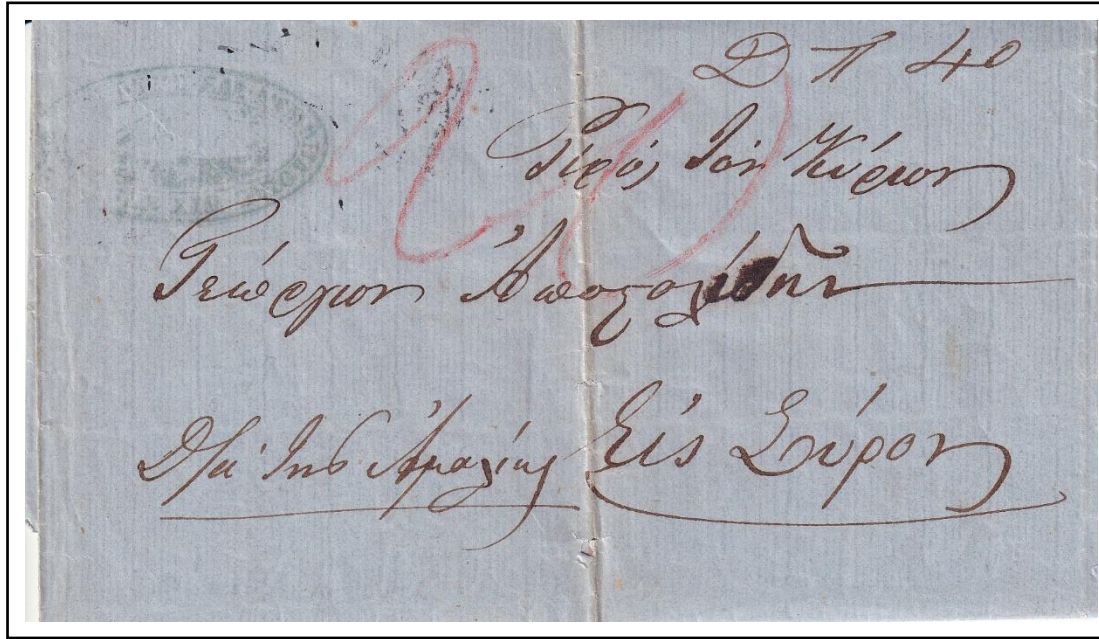 Δ Π 40
Πρός τον Κύριον
Γεώργιον Ἀποστολίδην
Διά της Ἀμαλίας Εἰς Σύρον